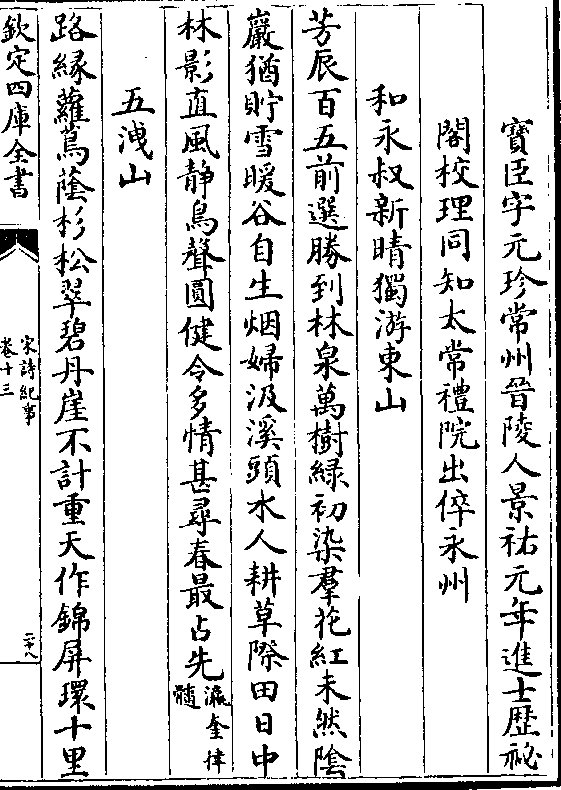 寶臣字元珍常州晉陵人景祐元年進士歴祕
閣校理同知太常禮院出倅永州
和永叔新晴獨游東山
芳辰百五前選勝到林泉萬樹緑初染羣花紅未然陰
巖猶貯雪暖谷自生烟婦汲溪頭水人耕草際田日中
林影直風静鳥聲圓健令多情甚尋春最占先瀛奎律
髓
五洩山
路緣蘿蔦蔭杉松翠碧丹崖不計重天作錦屏環十里
欽定四庫全書
宋詩紀事
卷十三
二十八